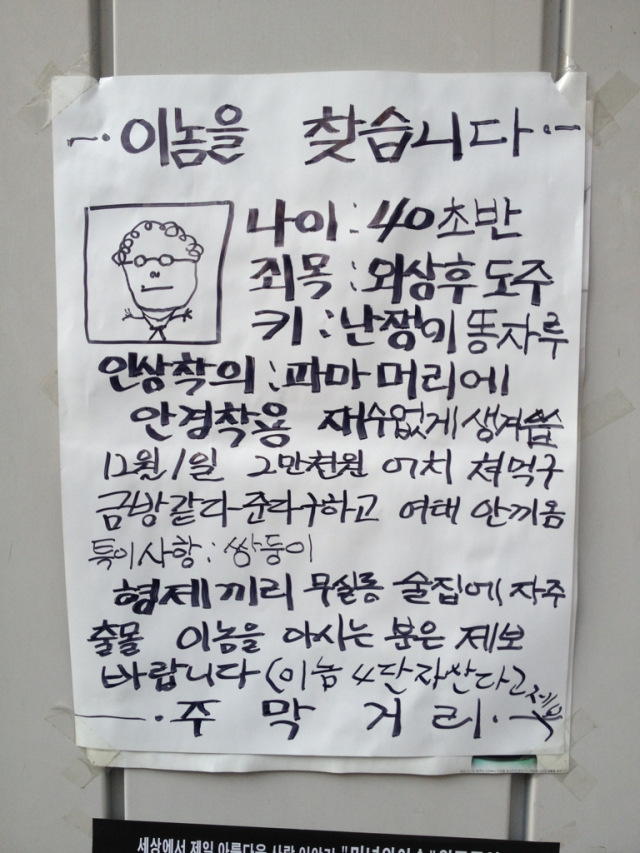 ~·이놈을 찾습니다·~
나이 : 40초반
죄목 : 외상후 도주
키 : 난쟁이 똥자루
인상착의 : 파마 머리에
안경착용 재수없게 생겨씀
12월 1일 2만천원 어치 쳐먹구
금방 같다 준다구하고 여태 안끼옴
특이사항 : 쌍둥이
형제끼리 무실동 술집에 자주
출몰 이놈을 아시는 분은 제보
바랍니다 (이놈 4단지 산다고
· 주 막 거 리 ·
세상에서 제일 아름다운 사랑 이야기